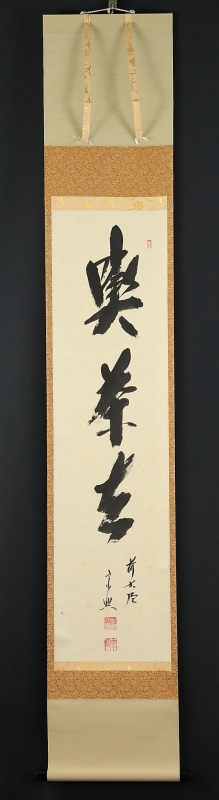 喫茶去
前大徳